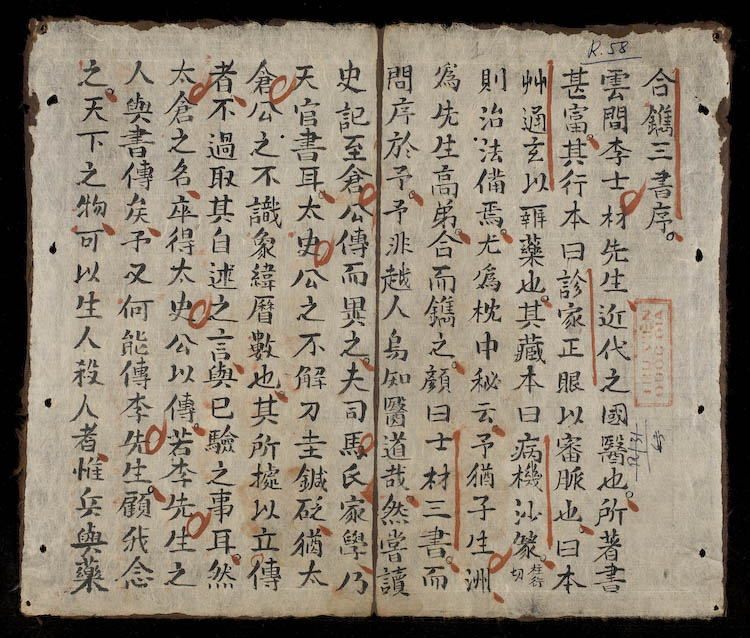 R.58
合鐫三書序。
雲間李士材先生近代之國醫也。所著書
甚富。其行本曰診家正眼以審脈也。曰本
艸通玄以辨藥也。其藏本曰病機沙篆。
則治法備焉。尤爲枕中秘云。予猶子生洲
爲先生高弟。合而鐫之。顏曰士材三書。而
問序於予。予非越人烏知醫道哉。然嘗讀
史記至倉公傳而異之。夫司馬氏家學乃
天官書耳。太史公之不解刀圭鍼砭猶太
倉公之不識象緯曆數也。其所據以立傳
者不過取其自述之言與已驗之事耳。然
太倉之名卒得太史公以傳。若李先生之
人與書傳矣。予又何能傳李先生。顧我念
之。天下之物可以生人殺人者惟兵與藥